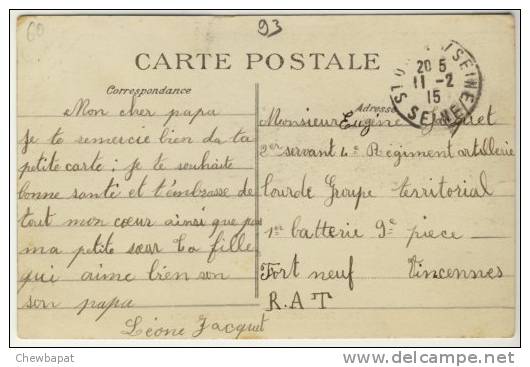 60
93
CARTE POSTALE
Correspondance
Adresse
Mon cher papa
Je te remercie bien de ta
petite carte ; je te souhaite
bonne santé et t'embrasse de
tout mon cœur ainsi que
ma petite sœur ta fille
qui aime bien son
son papa
Léone Jacquet
Monsieur Eugène Jacquet
2er servant 4e Régiment artillerie
lourde Groupe territorial
1re batterie 9e pièce
Fort neuf Vincennes
R.A.T
20 5
11 -2
15
SEINE
Chewbapat
delcampe.net